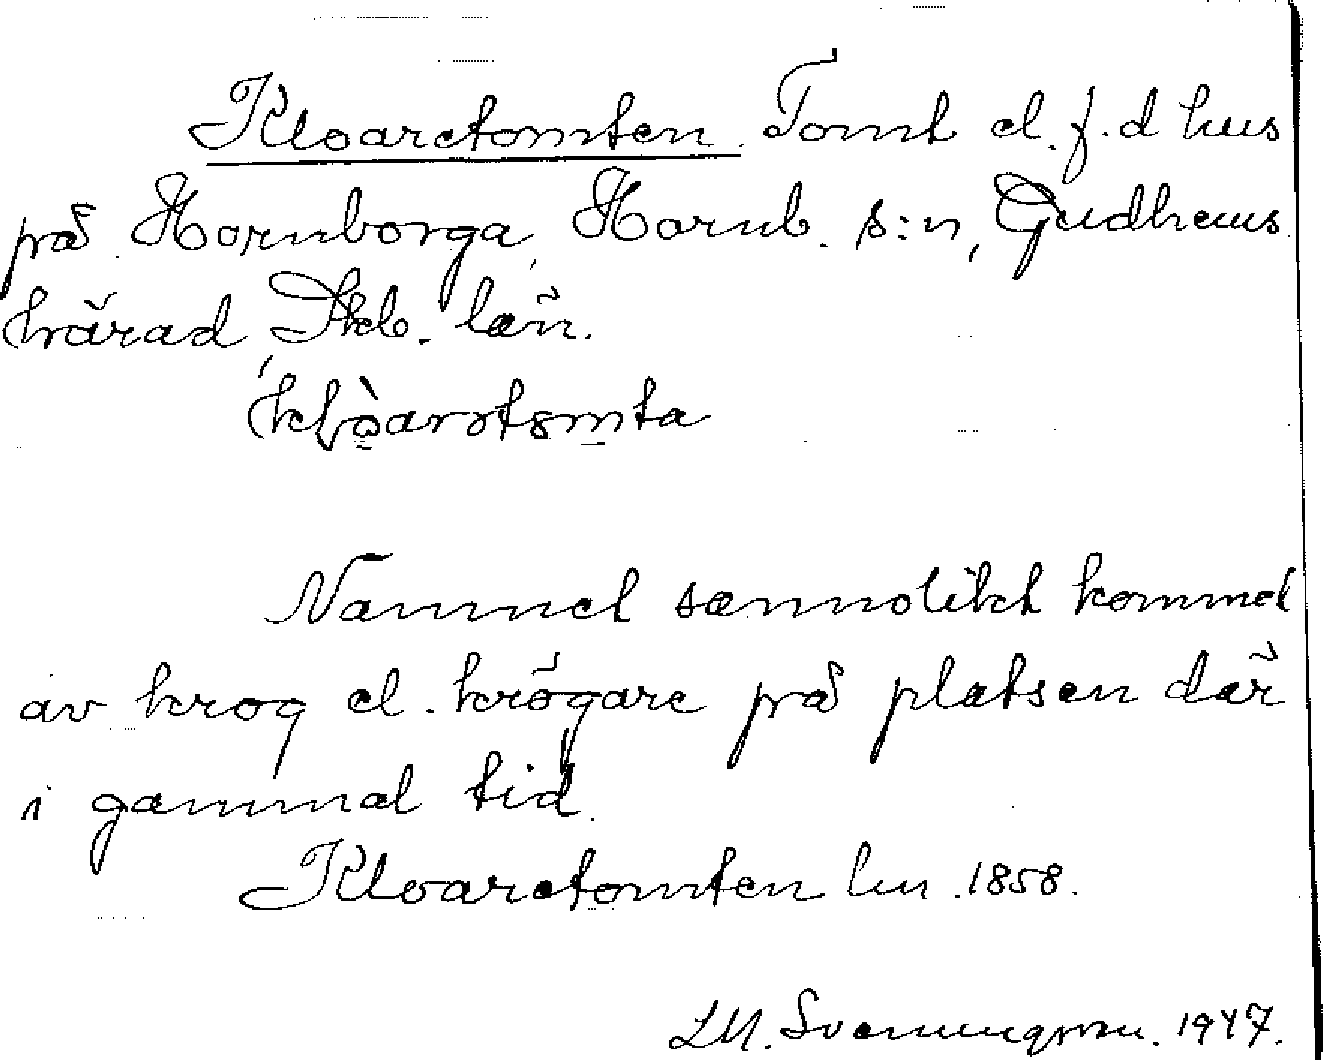 Kloaretomten. Tomt el. f.d hus
på Hornborga, Hornb. s:n, Gudhems
härad, Skb. län.
Namnet sannolikt kommet
av krog el. krögare på platsen där
i gammal tid.
Kloaretomten lm. 1858.
LM. Svenungsson. 1947.